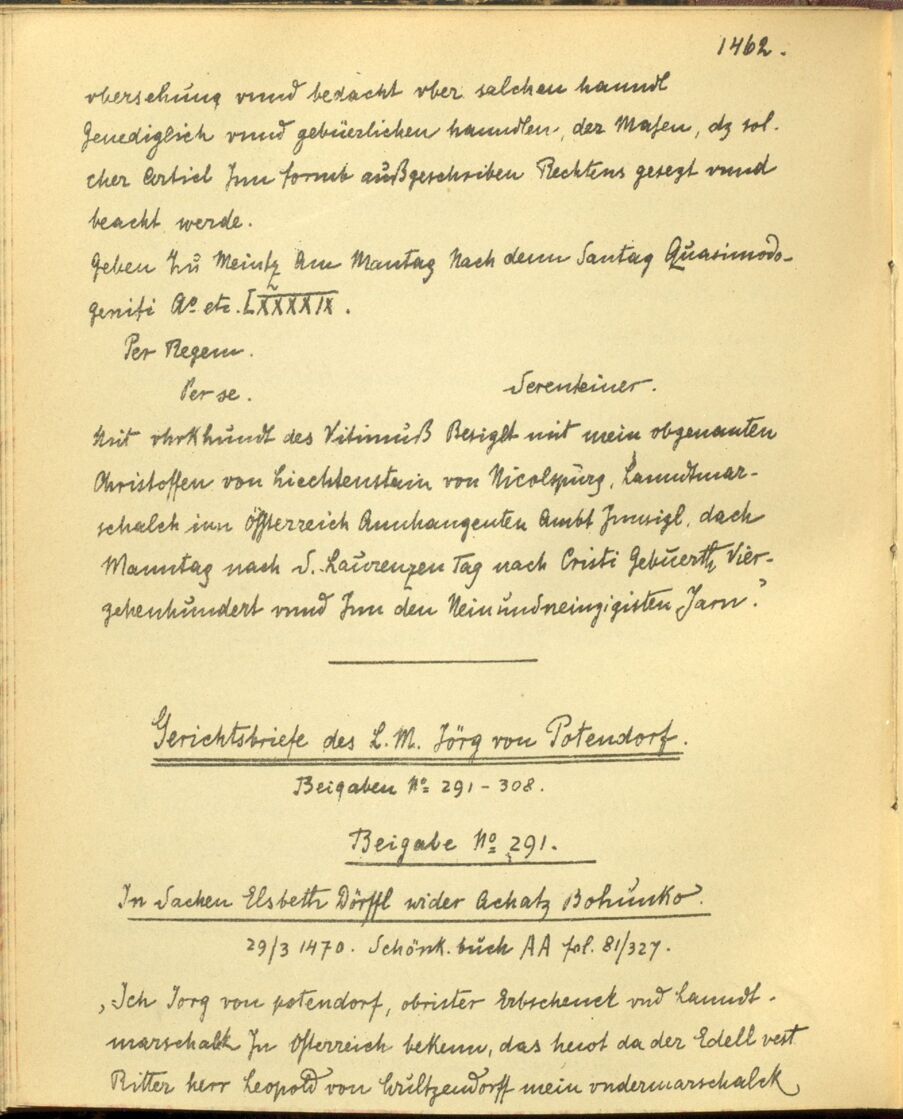 1462.
vbersehung vnnd bedacht vber salchen hanndl
Genediglich vnnd gebüerlichen hanndlen, der Masen, dz sol-
cher Articl Inn formb außgeschriben Rechtens gesezt vnnd
beacht werde.
Geben Zu Meintz Am Mantag Nach denn Santag Quasimodo-
geniti Ao etc. LXXXXIX.
Per Regem.
Per se. Serenteiner.
Mit vhrkhundt des Vitimuß Besiglt mit mein obgenanten
Christoffen von Liechtenstain von Nicolspurg, Lanndtmar-
schalch inn Össterreich Annhangenten Ambt Innsigl, dach
Manntag nach S. Laurenzen Tag nach Cristi Gebuerth, Vier-
zehenhundert vnnd Inn den Nein undneinzigisten Jarn."
Gerichtsbriefe des L. M. Jörg von Potendorf.
Beigaben No 291 - 308.
Beigabe No 291.
In Sachen Elsbeth Dörffl wider Achatz Bohunko.
29/3 1470. Schönk. buch AA fol. 81/327.
„Ich Jorg von potendorf, obrister Erbschenck vnd Lanndt-
marschalk In Osterreich bekenn, das hewt da der Edell vest
Ritter herr Leopold von Wultzendorff mein vndermarschalck